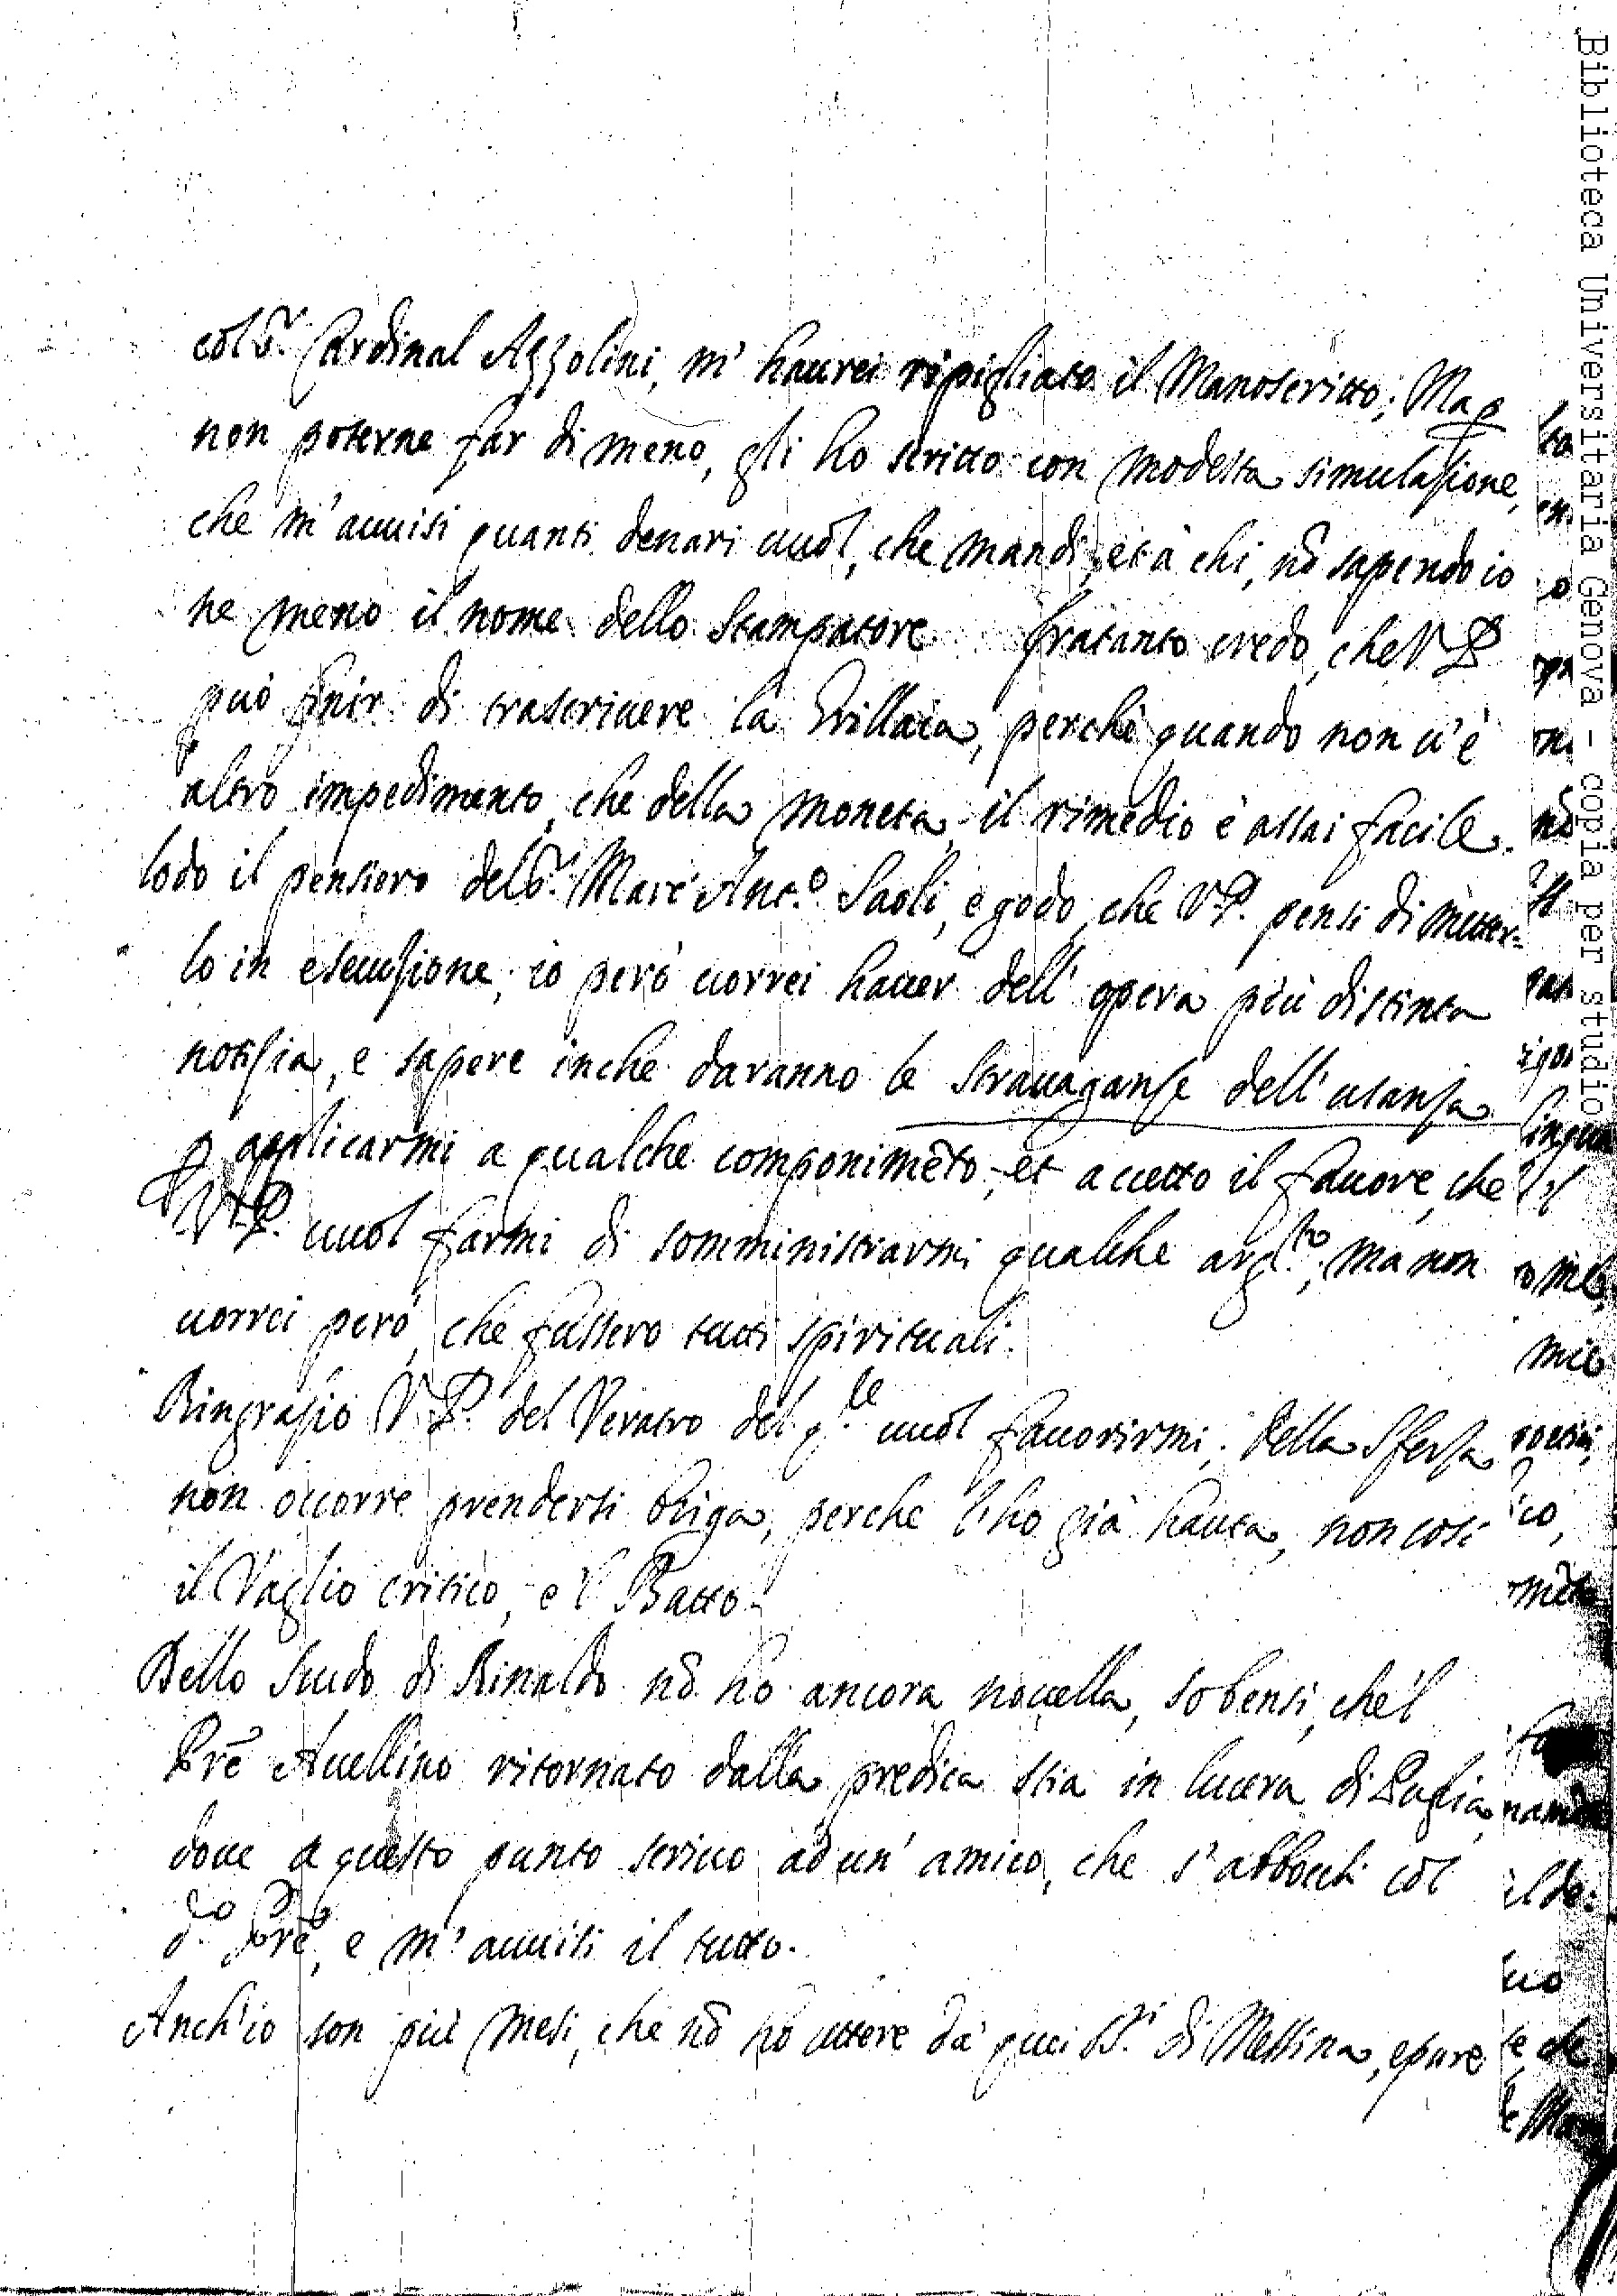 col S.r Cardinal Azzolini, m' haurei ripigliato il Manoscritto; Ma p
non poterne far di meno, gli ho scritto con modesta simulazione,
che m' auuisi quanti denari uuol, che mandi, et à chi, nō sapendo io
ne meno il nome dello Stampatore fratanto credo, che V. P.
può finir di trascriuere la Grillaia, perche quando non u' è
altro impedimento, che della moneta, il rimedio è assai facile.
lodo il pensiero del S.r Marc' Ant.o Saoli, e godo, che V.P. pensi di metter-
lo in esecuzione; io però uorrei hauer dell' opera più distinta
notizia, e sapere inche daranno le Strauaganze dell' usanza
p applicarmi a qualche componimēto, et accetto il fauore, che
V. P. uuol farmi di somministrarmi qualche arg.to, mà non
uorrei però, che fussero tutti spirituali.
Ringrazio V. P. del Veratro del q.le uuol fauorirmi; della Sferza
non occorre prendersi briga, perche l' ho già hauta, non così
il Vaglio critico, e 'l Batto.
Dello Scudo di Rinaldo nō ho ancora nouella, so bensi, che 'l
Prē Auellino ritornato dalla predica stia in lucera di Puglia,
doue a questo punto scriuo ad un' amico, che s' abbocchi col
d.o Prē, e m' auuisi il tutto.
Anch' io son più mesi, che nō hò lettere da quei SS.ri di Messina, epure
Biblioteca Universitaria Genova - copia per studio